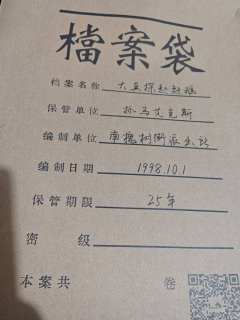 檔案袋
档案名称 大豆探秘
保管单位 孙马艾克斯
编制单位 南槐树街派出所
编制日期 1998.10.1
保管期限 25年
密级
本案共 卷